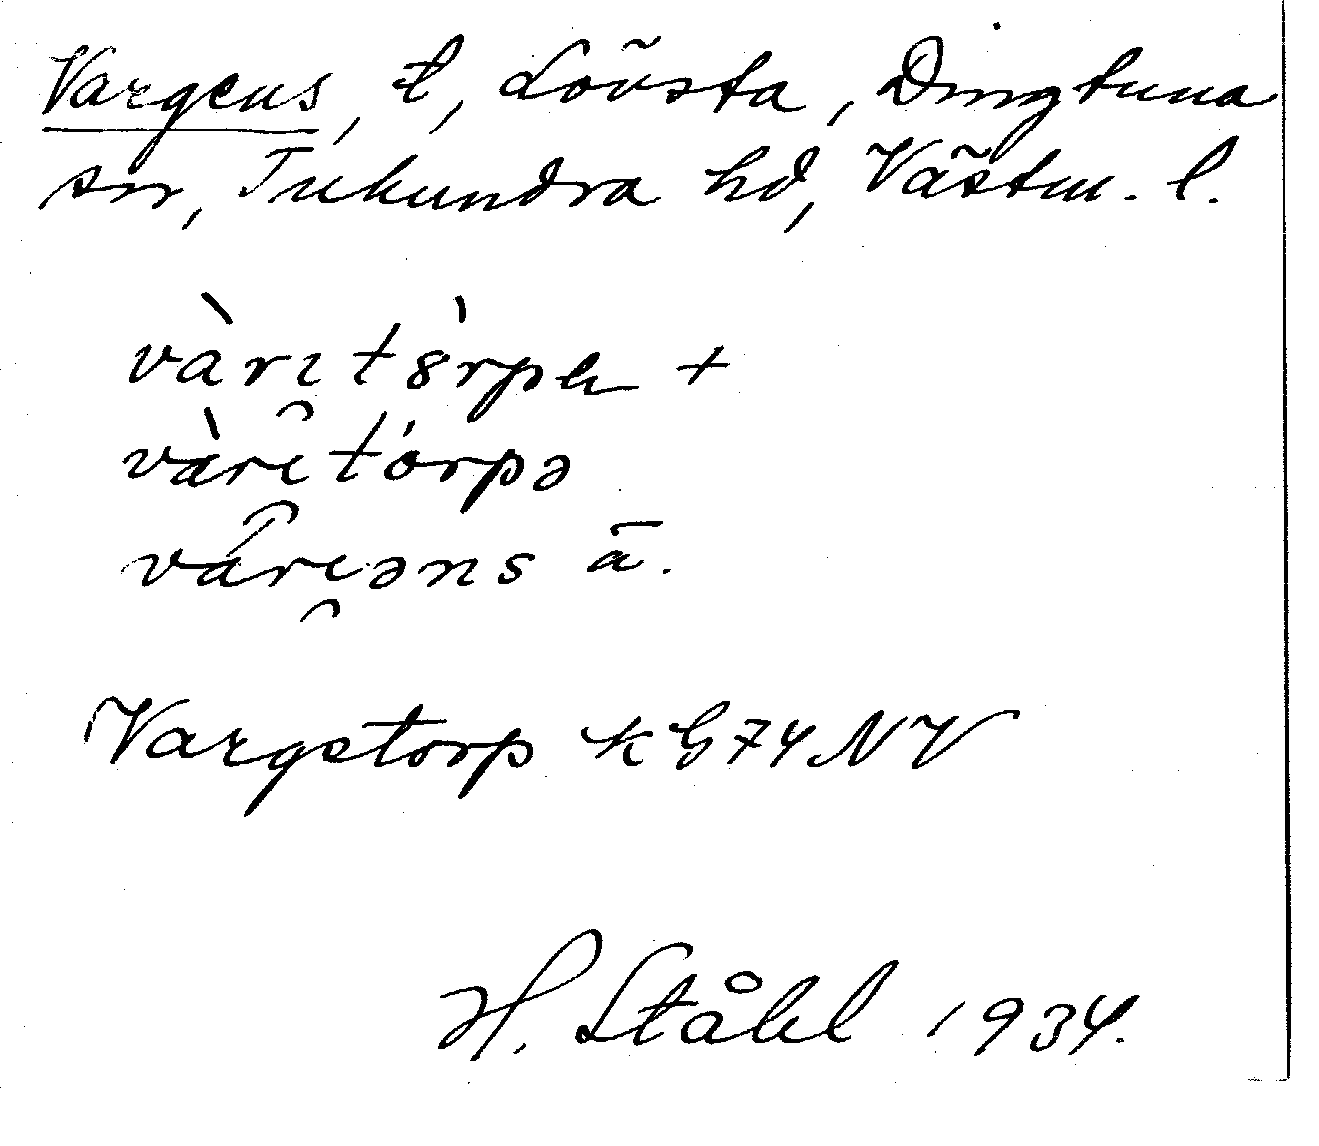 Vargens, t, Lövsta, Dingtuna
sn, Tuhundra hd, Västm. l.
vàrı̯tòrpa +
vàrı̯tórpə
vârı̯əns ā.
Vargstorp k G74NV
H. Ståhl 1934.